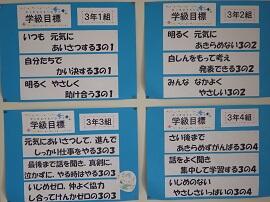 学級目標
3年1組
いつも 元気に
あいさつする3の1
自分たちで
かい決する3の1
明るく やさしく
助け合う3の1
学級目標
3年2組
明るく 元気に
あきらめない3の2
自しんをもって考え
発表できる3の2
みんな なかよく
やさしい3の2
学級目標
3年3組
元気にあいさつして、進んで
しっかり仕事をやる3の3
最後まで話を聞き、真剣に
泣かずに、やる時はやる3の3
いじめゼロ、仲よく協力
し合ってけんかゼロの3の3
学級目標
3年4組
さい後まで
あきらめずがんばる3の4
話をよく聞き
集中して学習する3の4
いじめのない
やさしさいっぱいの3の4